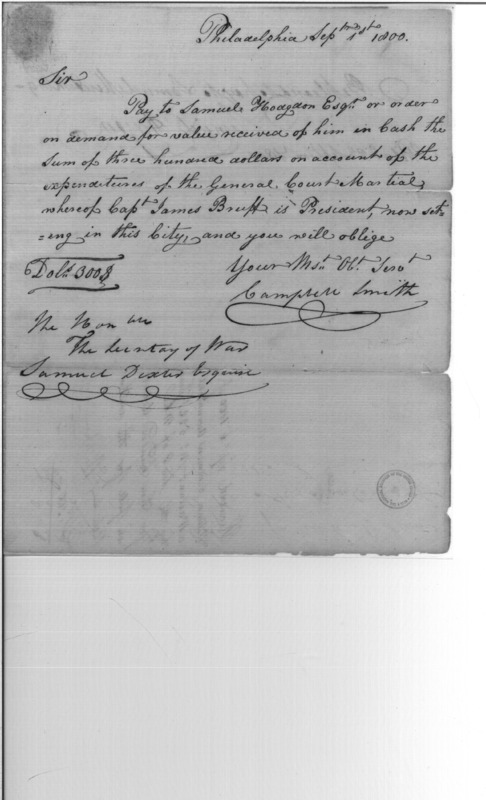 Philadelphia Sepr. 1st 1800.
Sir
Pay to Samuel Hodgdon Esqr. or order
on demand for value received of him in Cash the
sum of three hundred dollars on account of the
expenditures of the General Court Martial,
whereof Capt. James Bruff is President, now sit=
=eng in this City, and you will oblige
Dolls. 300$ Your Mst. Obt. Servt.
Campbell Smith
The Hon ble
The Secretay of War
Samuel Dexter Esquire